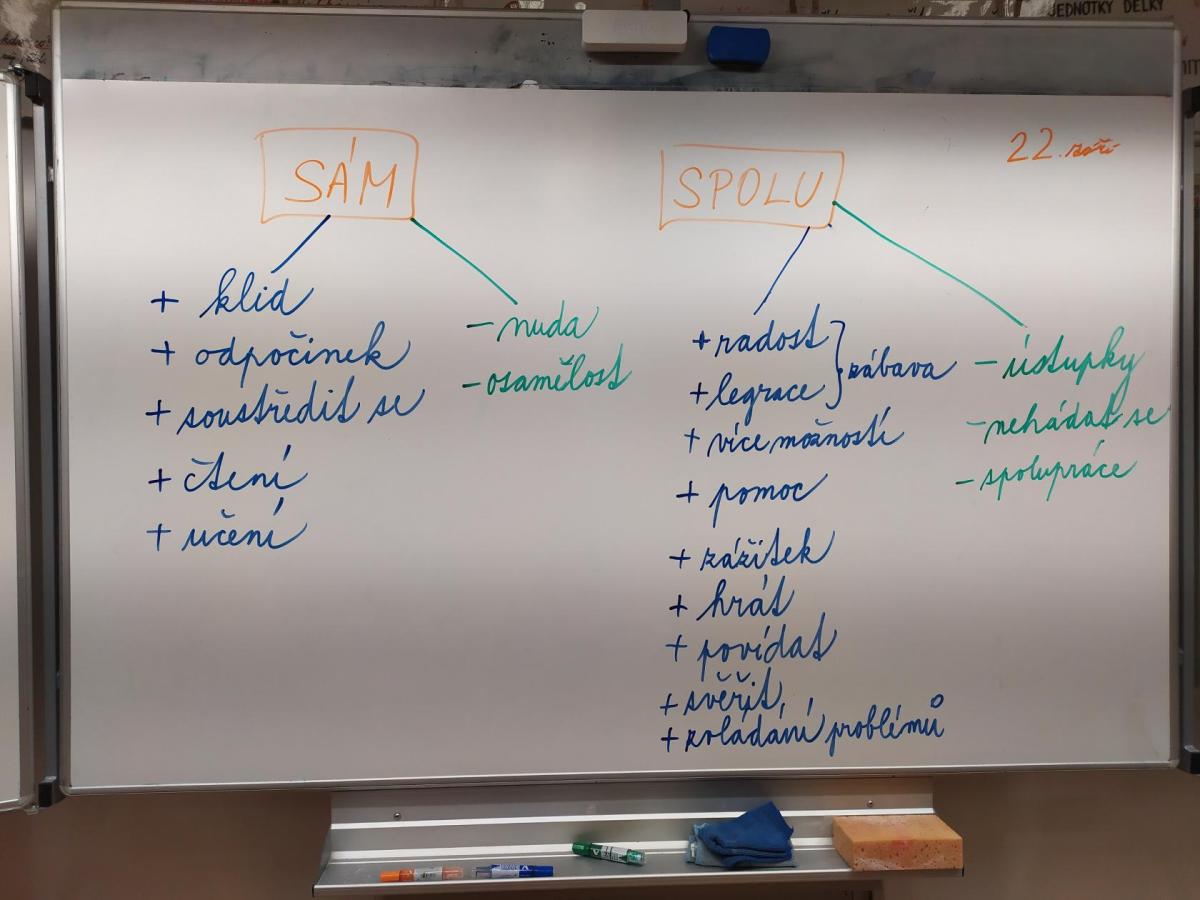 JEDNOTKY DÉLKY
22. září
SÁM
+ klid
+ odpočinek
+ soustředit se
+ čtení
+ učení
- nuda
- osamělost
SPOLU
+ radost
+ legrace
} zábava
+ více možností
+ pomoc
+ zážitek
+ hrát
+ povídat
+ svěřit
+ zvládání problémů
- ústupky
- nehádat se
- spolupráce